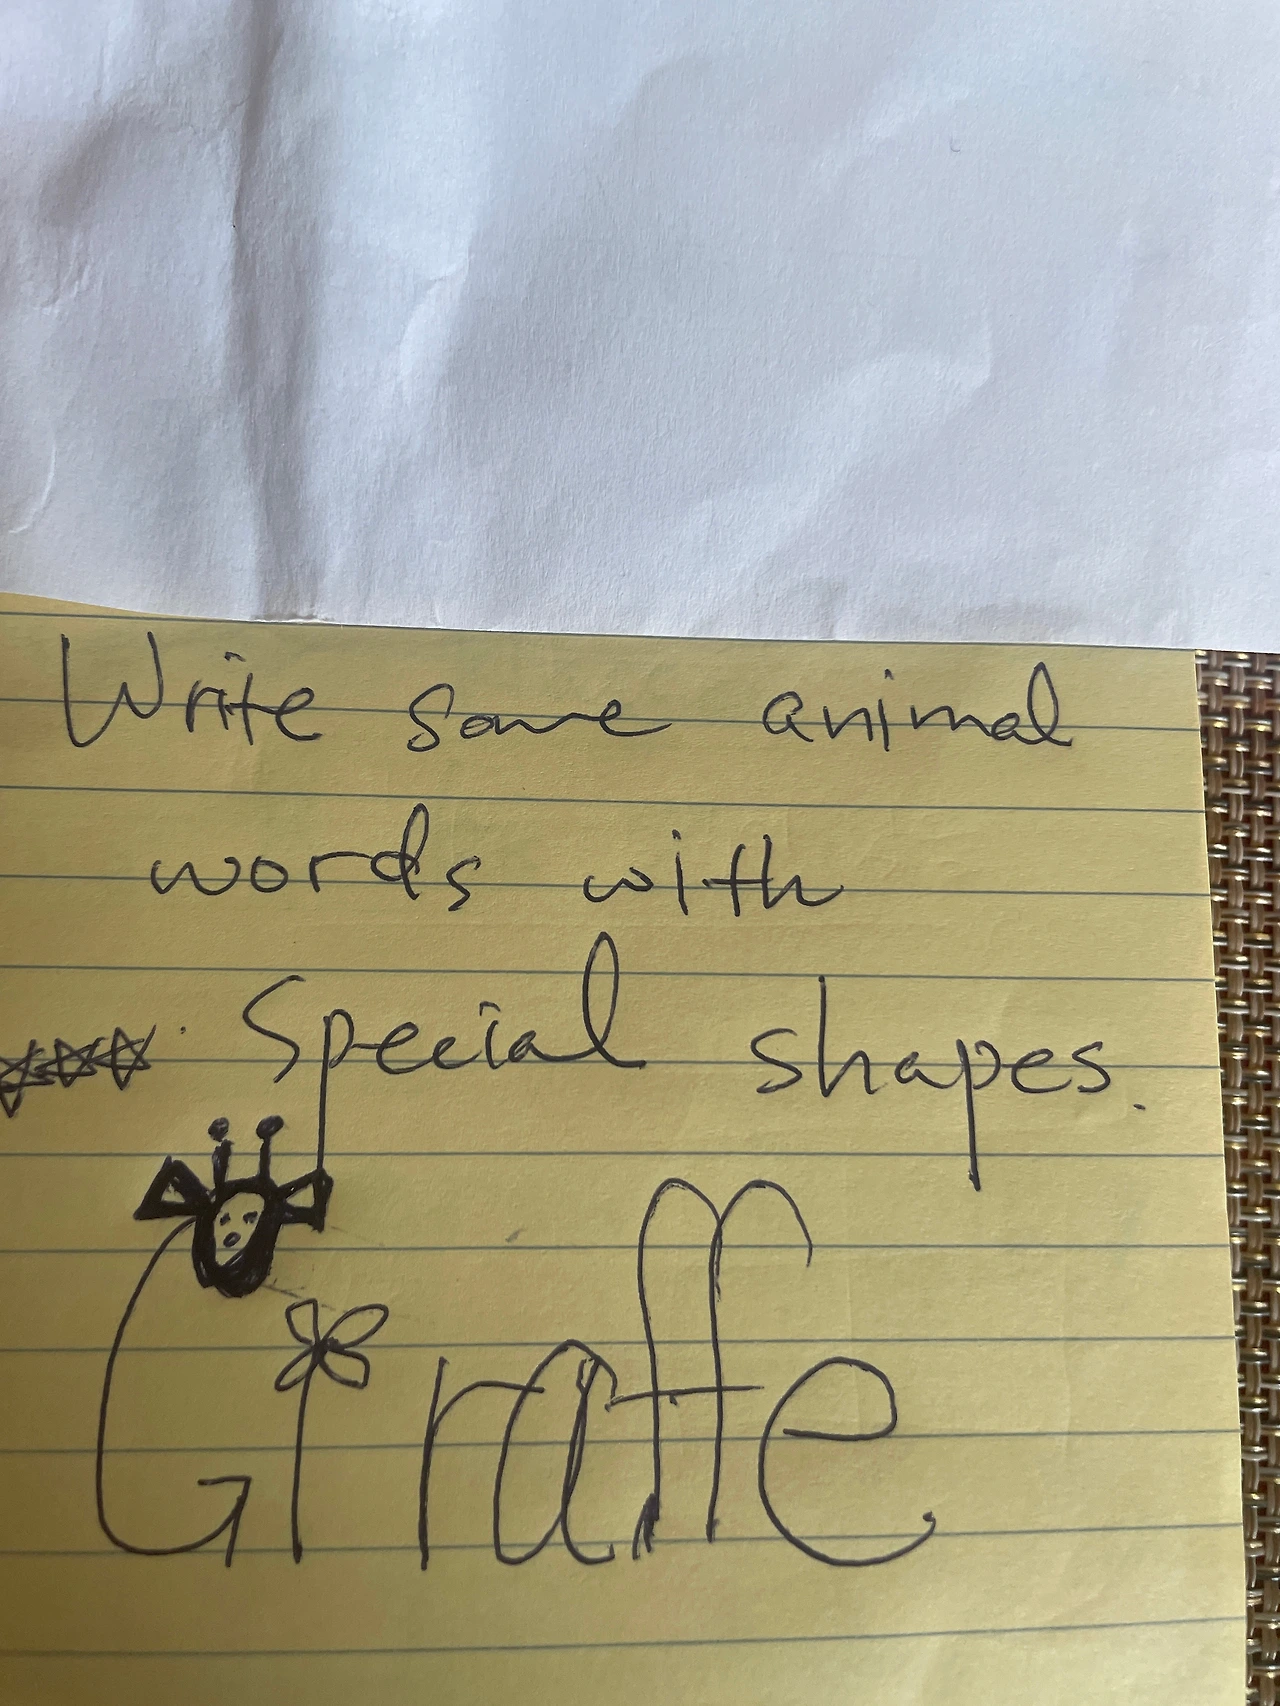 Write some animal
words with
Special shapes.
Giraffe